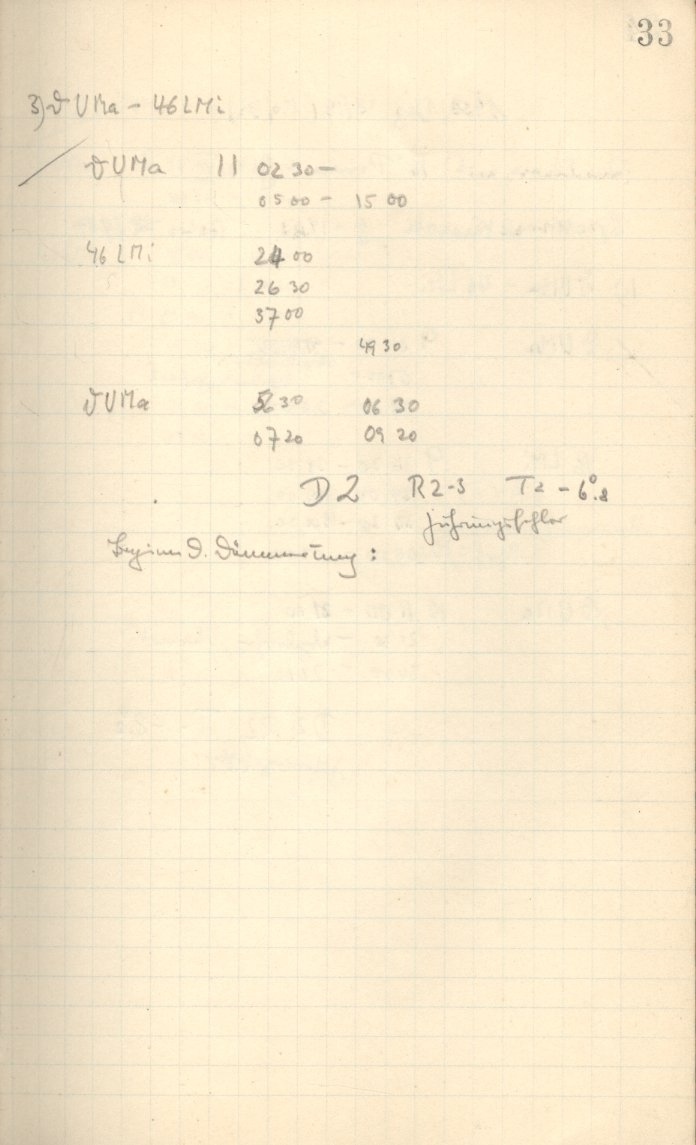 33
3) ϑ UMa – 46 LMi
ϑ UMa 11 02 30 –
05 00 – 15 00
46 LMi 24 00
26 30
37 00
49 30
ϑ UMa 56 30 06 30
07 20 09 20
D2 R2-3 T2 – 6°.8
Führungsfehler
Beginn d. Dämmerung :